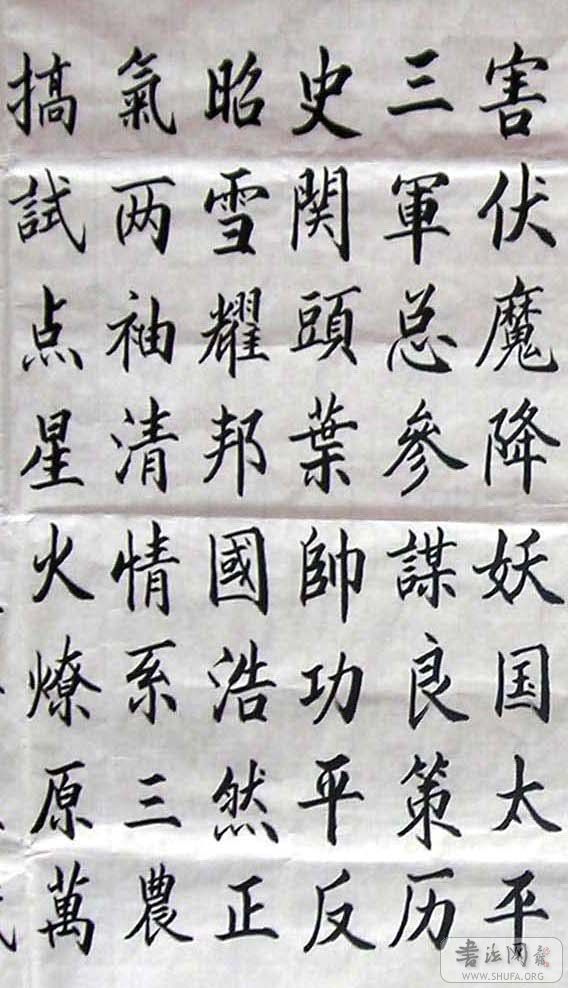 害伏魔降妖国太平
三軍总參謀良策历
史関頭葉帥功平反
昭雪耀邦國浩然正
氣两袖清情系三農
搞試点星火燎原萬
書法网
WWW.SHUFA.ORG